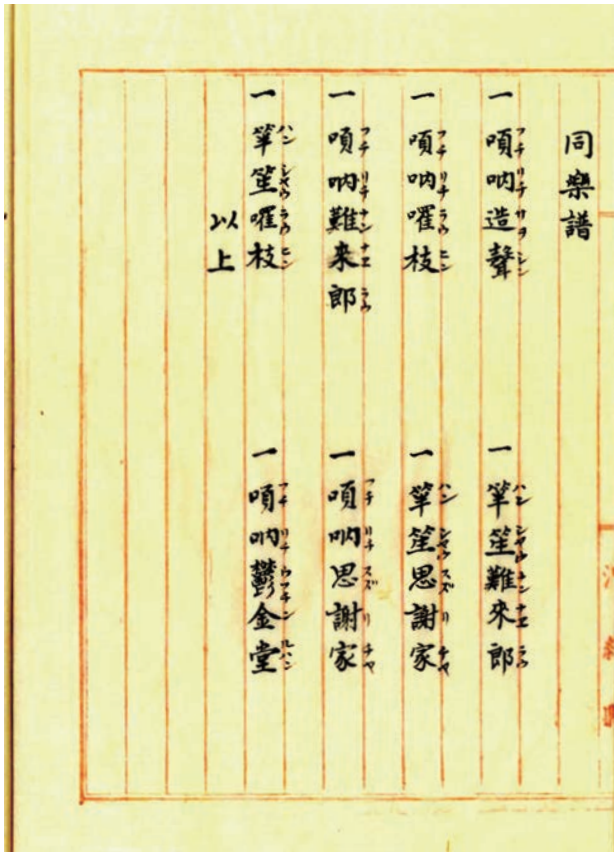 同樂譜
一 嗩吶造聲
フチ リチ サヲ シン
一 篳笙難來郎
ハン シヤウ ナン ナエ ラウ
一 嗩吶囉枝
フチ リチ ラウ ヒン
一 篳笙思謝家
ハン シヤウ スズ リ チヤ
一 嗩吶難来郎
フチ リチ ナン ナエ ラウ
一 嗩吶思謝家
フチ リチ スズ リ チヤ
一 篳笙囉枝
ハン シヤウ ラウ ヒン
一 嗩吶鬱金堂
フチ リチ
以上